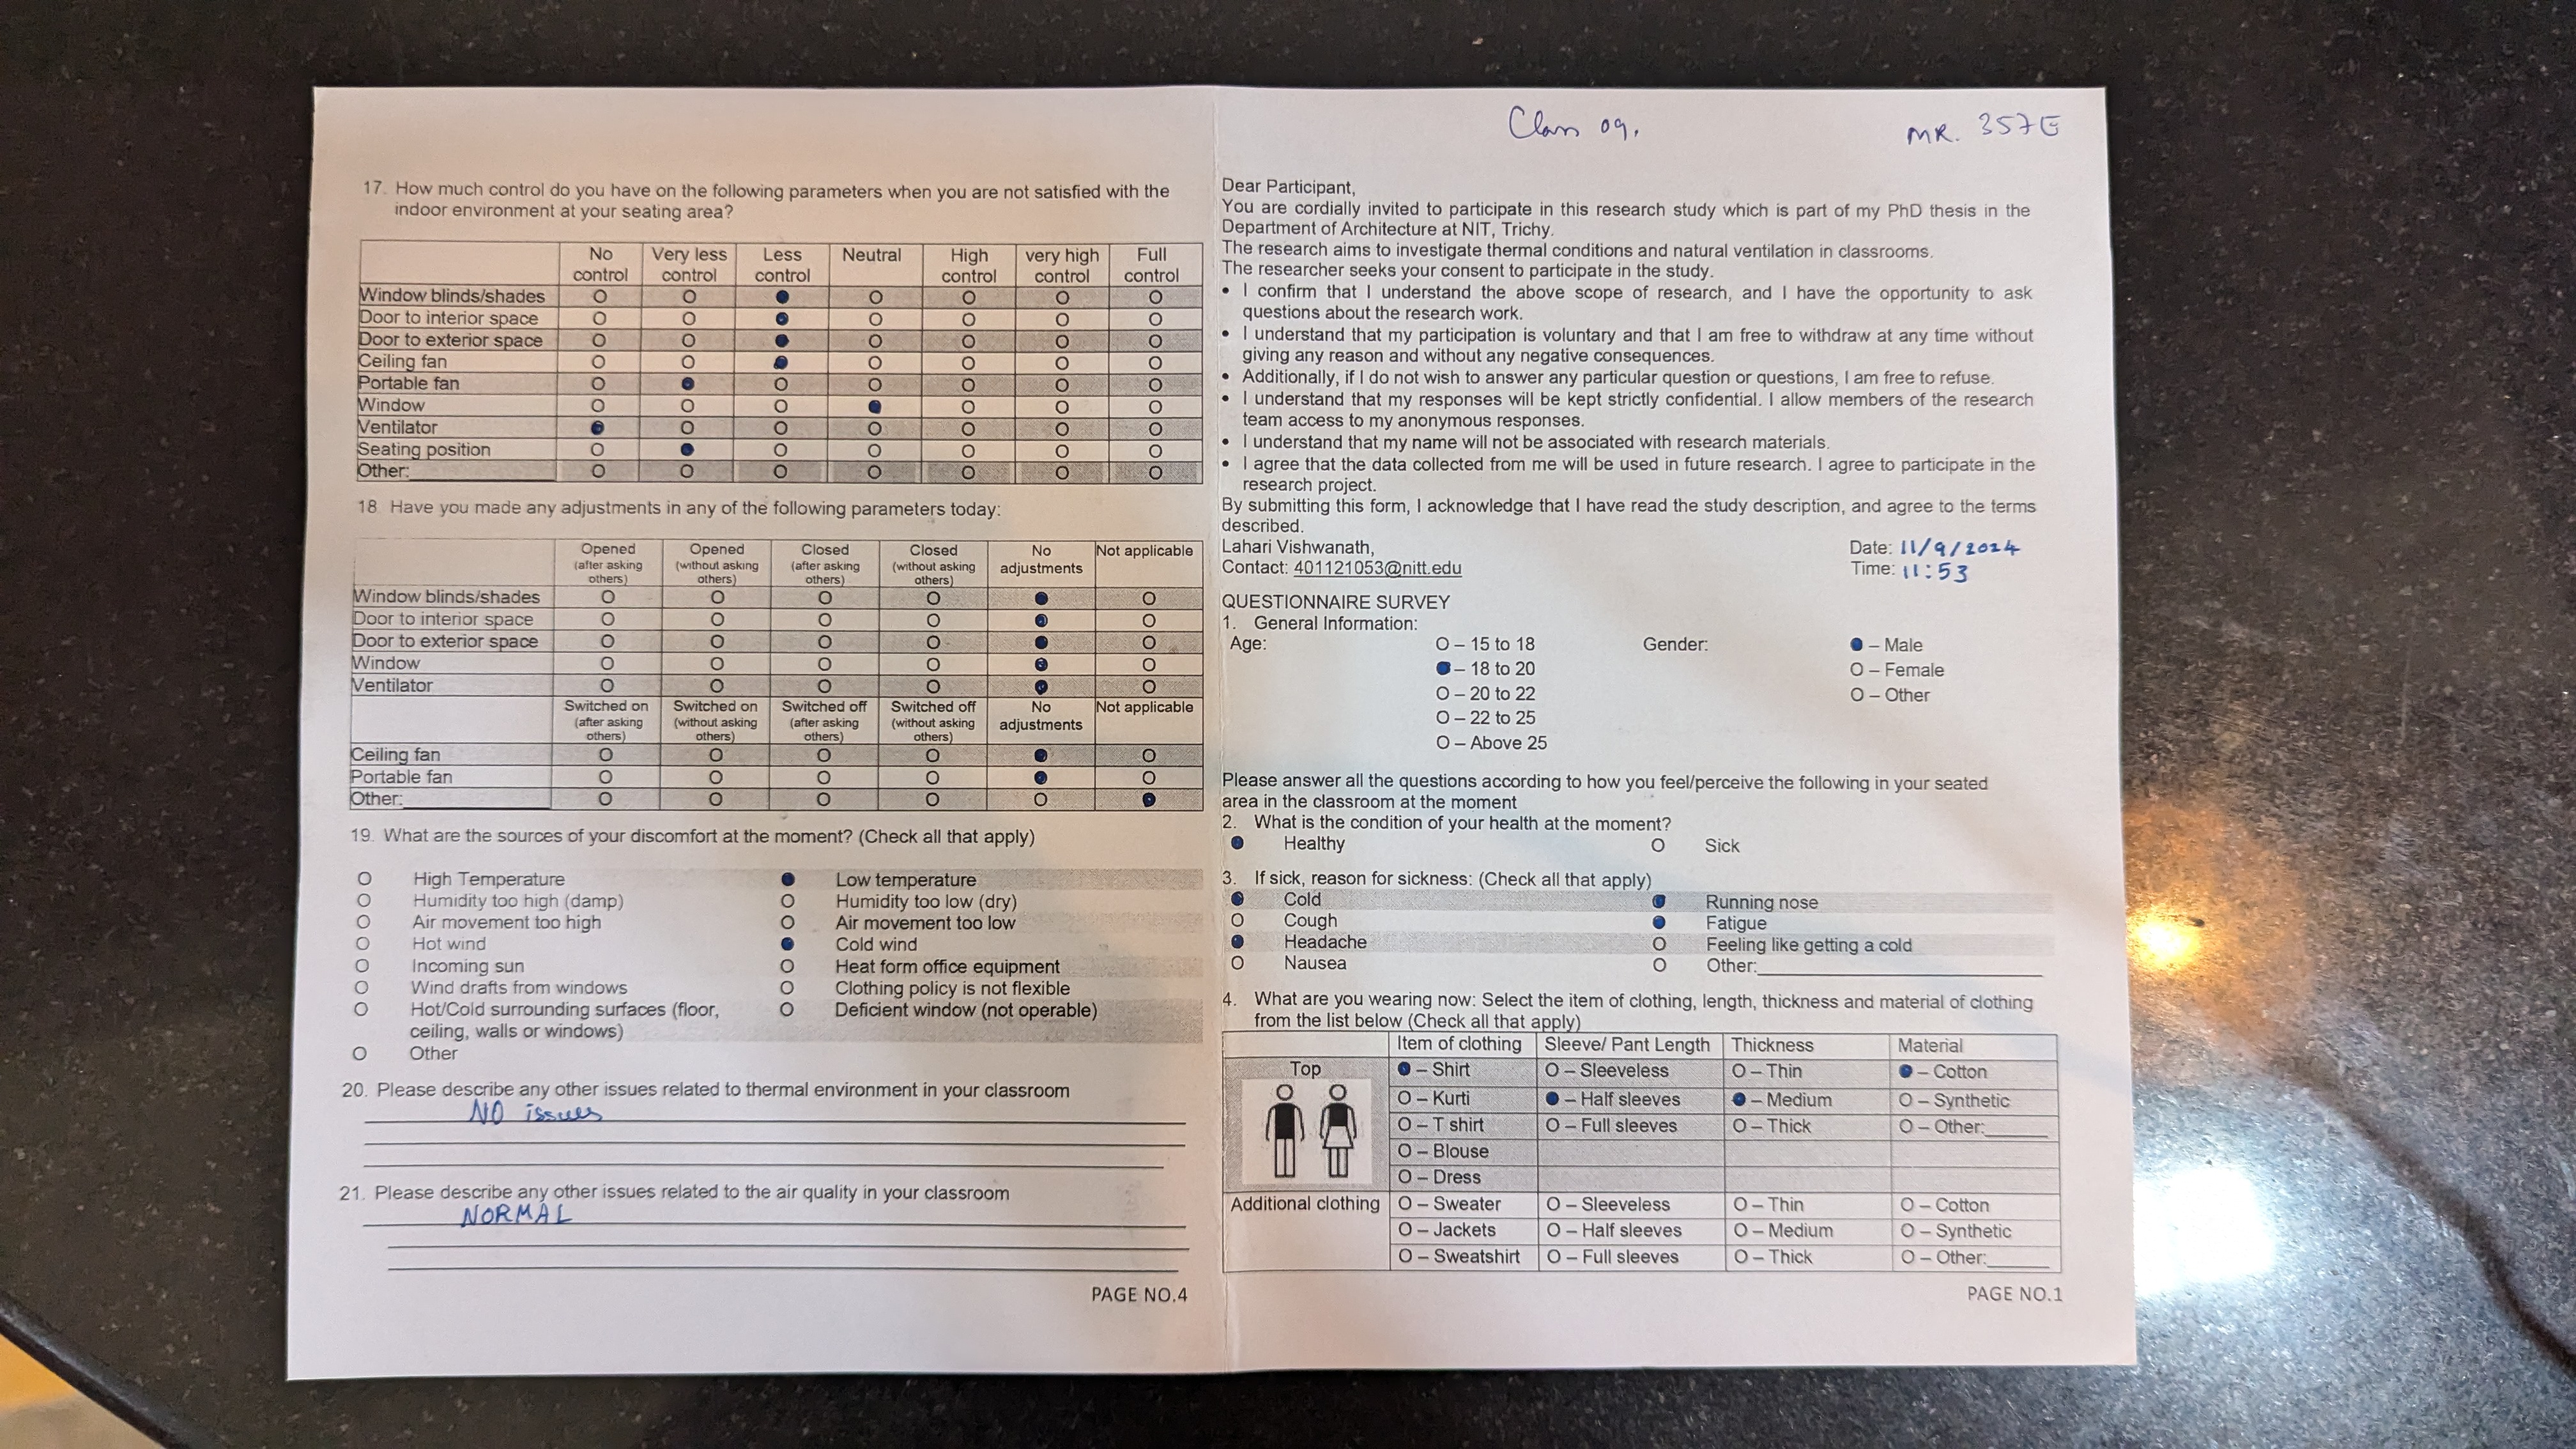 17. How much control do you have on the following parameters when you are not satisfied with the
indoor environment at your seating area?
No control Very less control Less control Neutral High control very high control Full control
Window blinds/shades O O ● O O O O
Door to interior space O O ● O O O O
Door to exterior space O O ● O O O O
Ceiling fan O O ● O O O O
Portable fan O ● O O O O O
Window O O O ● O O O
Ventilator ● O O O O O O
Seating position O ● O O O O O
Other:__________ O O O O O O O
18. Have you made any adjustments in any of the following parameters today:
Opened (after asking others) Opened (without asking others) Closed (after asking others) Closed (without asking others) No adjustments Not applicable
Window blinds/shades O O O O ● O
Door to interior space O O O O ● O
Door to exterior space O O O O ● O
Window O O O O ● O
Ventilator O O O O ● O
Switched on (after asking others) Switched on (without asking others) Switched off (after asking others) Switched off (without asking others) No adjustments Not applicable
Ceiling fan O O O O ● O
Portable fan O O O O ● O
Other:__________ O O O O O ●
19. What are the sources of your discomfort at the moment? (Check all that apply)
O High Temperature ● Low temperature
O Humidity too high (damp) O Humidity too low (dry)
O Air movement too high O Air movement too low
O Hot wind ● Cold wind
O Incoming sun O Heat form office equipment
O Wind drafts from windows O Clothing policy is not flexible
O Hot/Cold surrounding surfaces (floor, O Deficient window (not operable)
ceiling, walls or windows)
O Other
20. Please describe any other issues related to thermal environment in your classroom
NO issues
21. Please describe any other issues related to the air quality in your classroom
NORMAL
PAGE NO.4
Class 09.
MR. 357E
Dear Participant,
You are cordially invited to participate in this research study which is part of my PhD thesis in the
Department of Architecture at NIT, Trichy.
The research aims to investigate thermal conditions and natural ventilation in classrooms.
The researcher seeks your consent to participate in the study.
• I confirm that I understand the above scope of research, and I have the opportunity to ask
questions about the research work.
• I understand that my participation is voluntary and that I am free to withdraw at any time without
giving any reason and without any negative consequences.
• Additionally, if I do not wish to answer any particular question or questions, I am free to refuse.
• I understand that my responses will be kept strictly confidential. I allow members of the research
team access to my anonymous responses.
• I understand that my name will not be associated with research materials.
• I agree that the data collected from me will be used in future research. I agree to participate in the
research project.
By submitting this form, I acknowledge that I have read the study description, and agree to the terms
described.
Lahari Vishwanath, Date: 11/9/2024
Contact: 401121053@nitt.edu Time: 11:53
QUESTIONNAIRE SURVEY
1. General Information:
Age: O – 15 to 18 Gender: ● – Male
● – 18 to 20 O – Female
O – 20 to 22 O – Other
O – 22 to 25
O – Above 25
Please answer all the questions according to how you feel/perceive the following in your seated
area in the classroom at the moment
2. What is the condition of your health at the moment?
● Healthy O Sick
3. If sick, reason for sickness: (Check all that apply)
● Cold ● Running nose
O Cough ● Fatigue
● Headache O Feeling like getting a cold
O Nausea O Other:__________
4. What are you wearing now: Select the item of clothing, length, thickness and material of clothing
from the list below (Check all that apply)
Item of clothing Sleeve/ Pant Length Thickness Material
Top ● – Shirt O – Sleeveless O – Thin ● – Cotton
O – Kurti ● – Half sleeves ● – Medium O – Synthetic
O – T shirt O – Full sleeves O – Thick O – Other:______
O – Blouse
O – Dress
Additional clothing O – Sweater O – Sleeveless O – Thin O – Cotton
O – Jackets O – Half sleeves O – Medium O – Synthetic
O – Sweatshirt O – Full sleeves O – Thick O – Other:______
PAGE NO.1